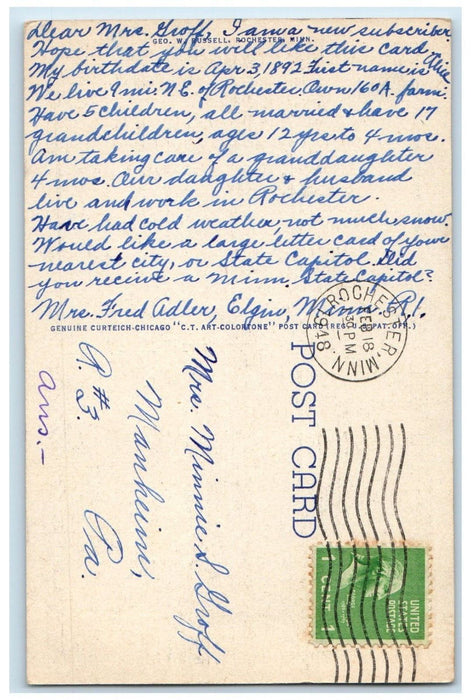 Dear Mrs. Groff, I am a new subscriber
GEO. W. RUSSELL, ROCHESTER, MINN.
Hope that you will like this card.
My birthdate is Apr. 3, 1892 First name is Alice
We live 9 mi. N.E. of Rochester, Own 160 A. farm.
Have 5 children, all married & have 17
grandchildren, ages 12 yrs to 4 mos.
Am taking care of a granddaughter
4 mos. Our daughter & husband
live and work in Rochester.
Have had cold weather, not much snow.
Would like a large letter card of your
nearest city, or State Capitol. Did
you recive a Minn. State Capitol?
Mrs. Fred Adler, Elgin, Minn. R1.
GENUINE CURTEICH-CHICAGO "C.T. ART-COLORTONE" POST CARD (REG. U.S. PAT. OFF.)
ROCHESTER, MINN.
FEB 18
30 PM
1948
POST CARD
Mrs. Minnie S. Groff
Manheim,
R #3. Pa.
Ans.-
UNITED
STATES
POSTAGE
1 CENT 1